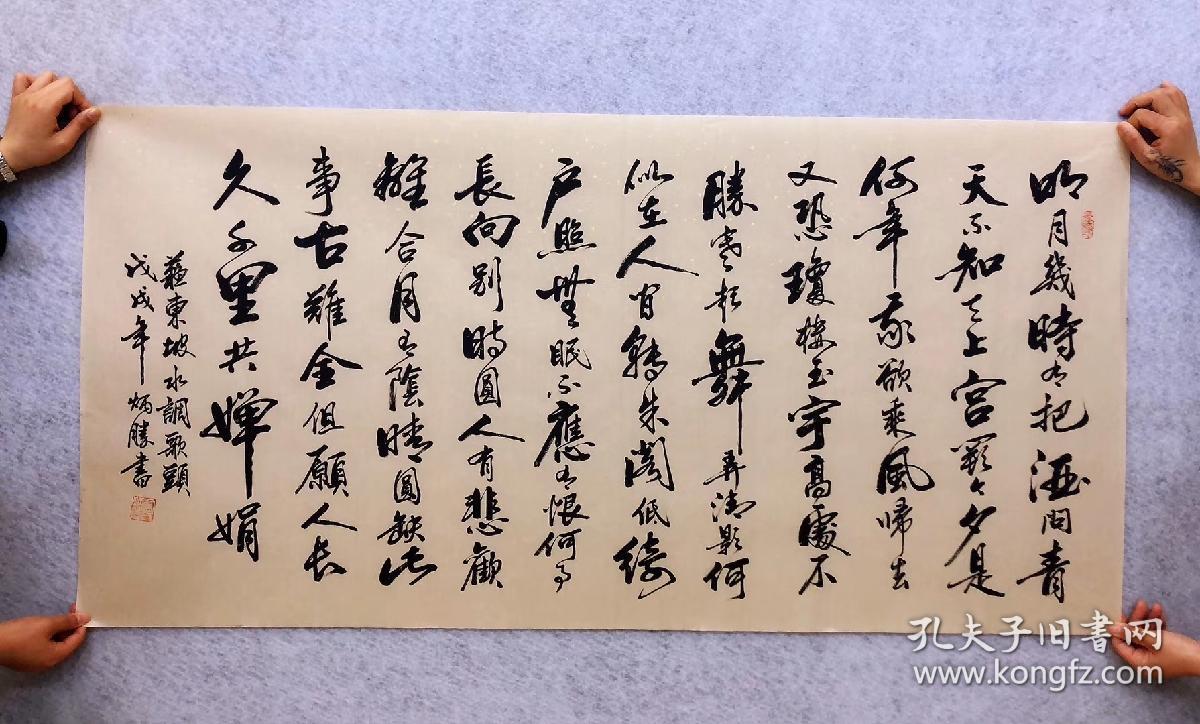 明月幾時有把酒問青
天不知天上宫闕今夕是
何年我欲乘風帰去
又恐瓊樓玉宇高處不
勝寒起舞弄清影何
似在人间轉朱阁低綺
户照無眠不應有恨何事
長向别時圓人有悲歡
離合月有陰晴圓缺此
事古難全但願人长
久千里共婵娟
蘇東坡水調歌頭
戊戌年炳勝書
孔夫子旧書网
www.kongfz.com